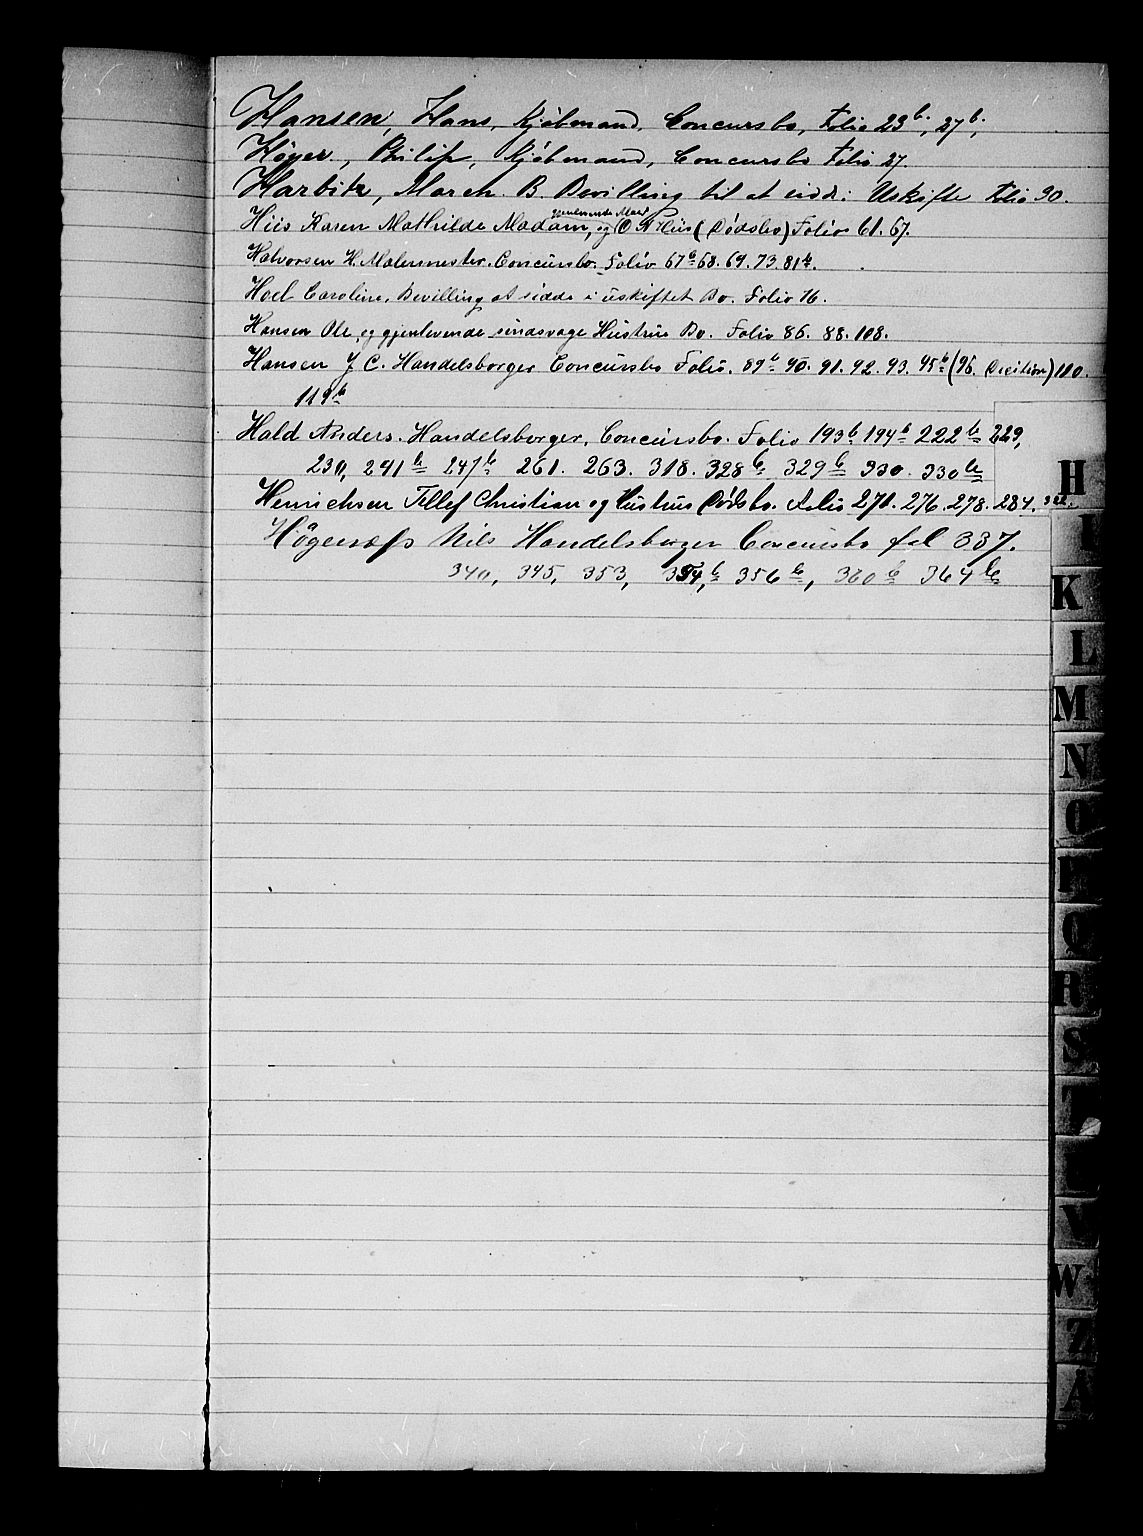 Hansen, Hans, Kjöbmand, Concursbo, Folio 23b, 27b,
Höyer, Philip, Kjöbmand, Concursbo Folio 27
Harbitz, Maren B. Bevilling til at sidde i Uskifte Folio 30.
Hiis Karen Mathilde Madam, og gjenlevende Mand O N Hiis (Dødsbo) Folio 61. 67.
Halvorsen H. Malermester. Concursbo. Folio 67b 68. 69. 73. 81b.
Hoel Caroline, Bevilling at sidde i uskiftet Bo. Folio 76.
Hansen Ole, og gjenlevende sindsvage Hustrus Bo. Folio 86. 88. 108.
Hansen J C. Handelsborger Concursbo Folio. 89b 90. 91. 92. 93. 95b (96. Decition) 110.
119b
Hald Anders. Handelsborger, Concursbo. Folio 193b 194b 222b 229,
230, 241b 247b 261. 263. 318. 328b 329b 330. 330b
Henrichsen Tellef Christian og Hustrus Dødsbo. Folio 270. 276. 278. 284.
Nils Handelsborger Concursbo fol 337.
340, 345, 353, 354,b 356b, 360b 364b
H
I
K
L
M
N
O
P
Q
R
S
T
V
W
Z